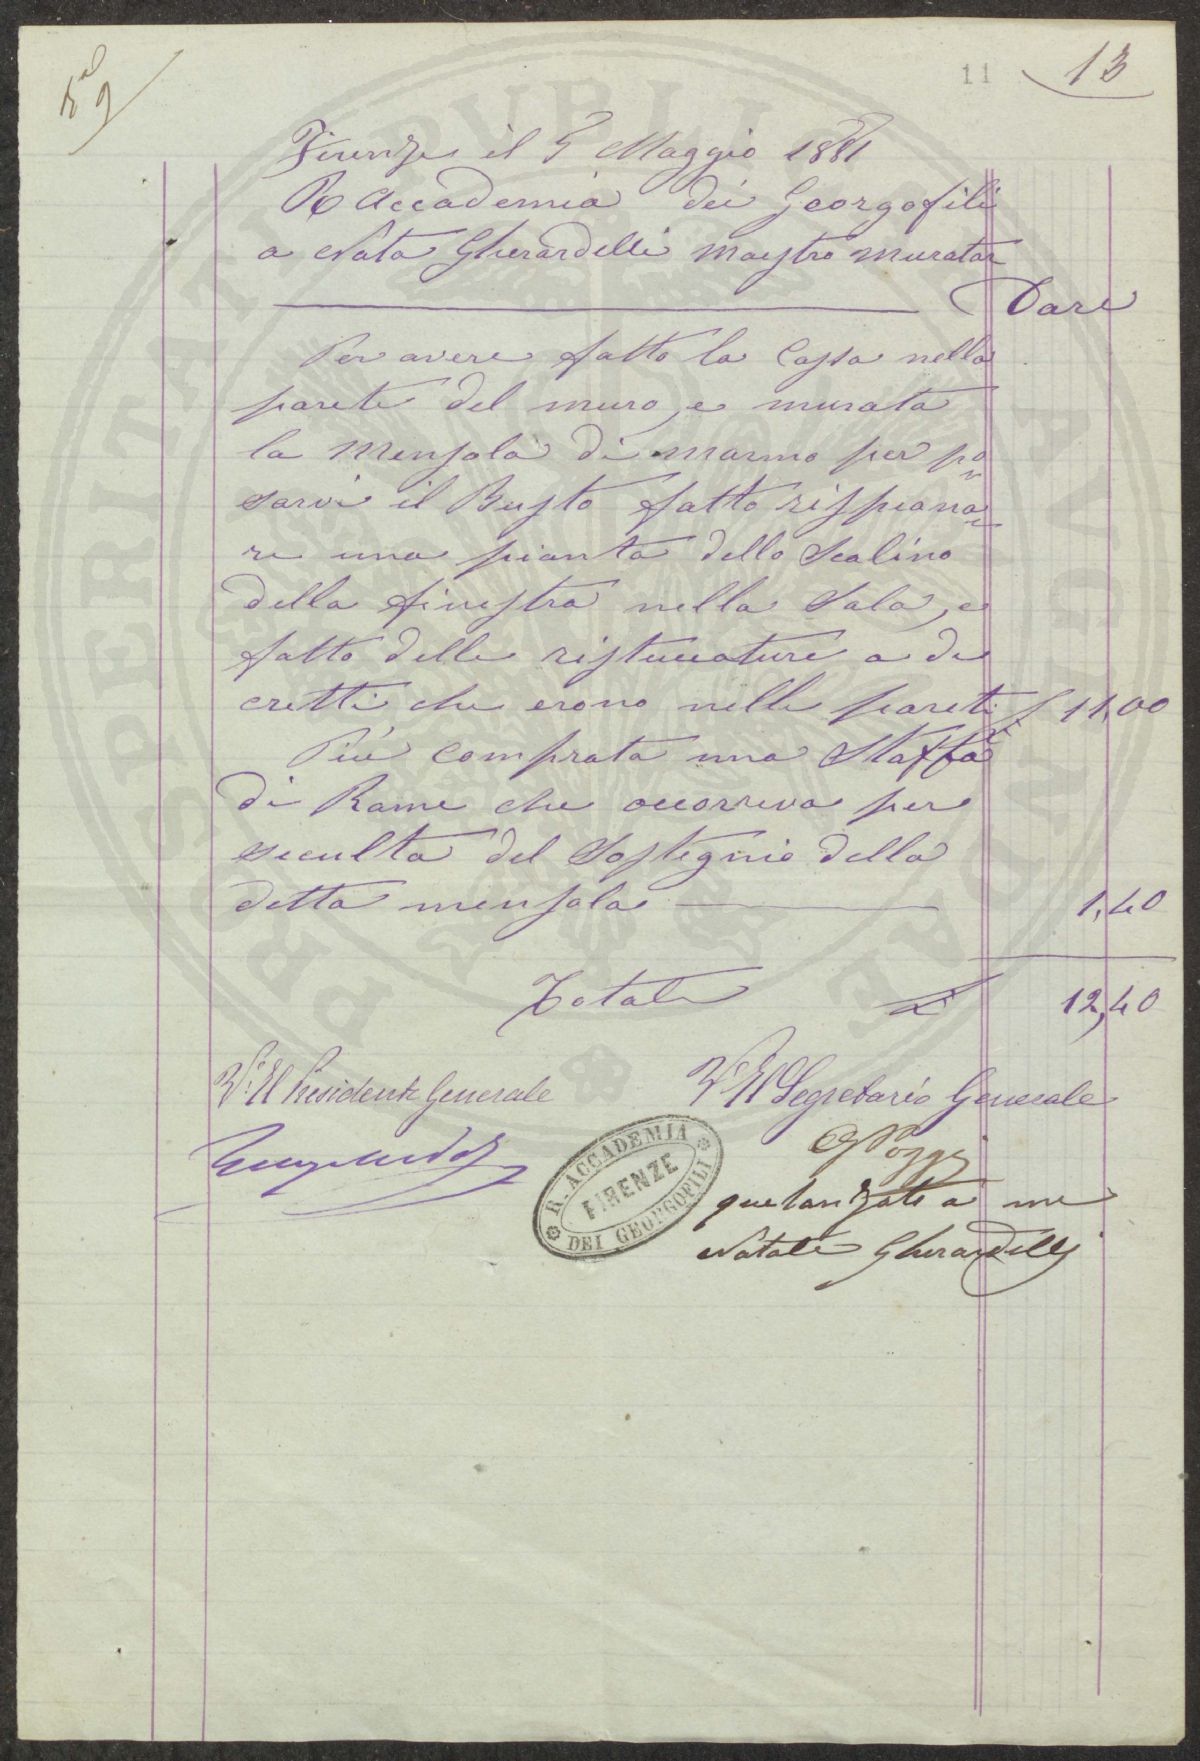 al
9
11
13
Firenze il 5 Maggio 1881
R Accademia dei Georgofili
a Nata Gherardelli maestro murator
Dare
Per avere fatto la Cassa nella
parete del muro, e murata
la Mensola di marmo per po
sarvi il Busto fatto rispiana
re una pianta dello Scalino
della finestra nella Sala, e
fatto delle ristuccature a de
cretti che erono nelle pareti £ 11,00
Più comprata una Staffa
di Rame che occorreva per
seculta del Sostegnio della
detta mensola 1,40
Totale £ 12,40
V° Il Presidente Generale
V° Il Segretario Generale
G Poggi
R. ACCADEMIA
FIRENZE
DEI GEORGOFILI
quetanzato a me
Natale Gherardelli
PROSPERITATI PUBLICAE AUGENDAE